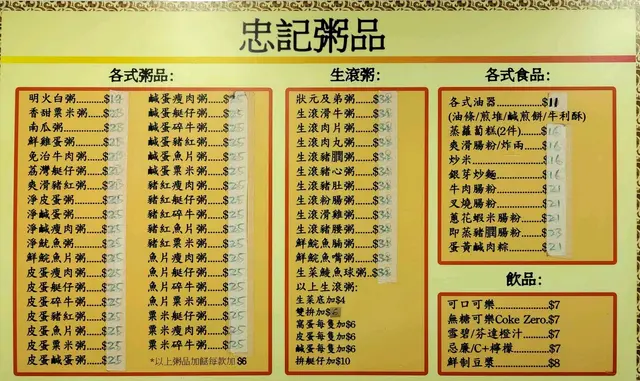 忠記粥品
各式粥品:
明火白粥
香甜粟米粥
南瓜粥
鮮雞蛋粥
免治牛肉粥
荔灣艇仔粥
爽滑豬紅粥
淨皮蛋粥
淨鹹蛋粥
淨鹹瘦肉粥
淨魷魚粥
皮蛋瘦肉粥 $25
皮蛋艇仔粥 $25
皮蛋碎牛粥 $25
皮蛋豬紅粥 $25
皮蛋魚片粥 $25
皮蛋粟米粥 $25
皮蛋鹹蛋粥 $25
鹹蛋瘦肉粥 $25
鹹蛋艇仔粥 $25
鹹蛋碎牛粥 $25
鹹蛋豬紅粥 $25
鹹蛋魚片粥 $25
鹹蛋粟米粥 $25
豬紅瘦肉粥 $25
豬紅艇仔粥 $25
豬紅碎牛粥 $25
豬紅魚片粥 $25
豬紅粟米粥 $25
魚片瘦肉粥 $25
魚片艇仔粥 $25
魚片碎牛粥 $25
魚片粟米粥 $25
粟米艇仔粥 $25
粟米瘦肉粥 $25
粟米碎牛粥 $25
*以上粥品加餸每款加 $6
生滾粥:
狀元及弟粥
生滾滑牛粥
生滾肉片粥
生滾肉丸粥
生滾豬膶粥
生滾豬心粥
生滾豬肚粥
生滾粉腸粥
生滾滑雞粥
生滾豬腰粥
鮮鯇魚腩粥
鮮鯇魚嘴粥
生菜鯪魚球粥
以上生滾粥:
生菜底加$4
雙拚加
窩蛋每隻加$6
皮蛋每隻加$6
鹹蛋每隻加$6
拚艇仔加$10
各式食品:
各式油器 $11
(油條/煎堆/鹹煎餅/牛利酥)
蒸蘿蔔糕(2件) $16
爽滑腸粉/炸兩 $16
炒米 $16
銀芽炒麵 $16
牛肉腸粉 $21
叉燒腸粉 $21
蔥花蝦米腸粉 $21
即蒸豬膶腸粉 $23
蛋黃鹹肉粽 $21
飲品:
可口可樂 $7
無糖可樂Coke Zero $7
雪碧/芬達橙汁 $7
忌廉/C+檸檬 $7
鮮制豆漿 $8